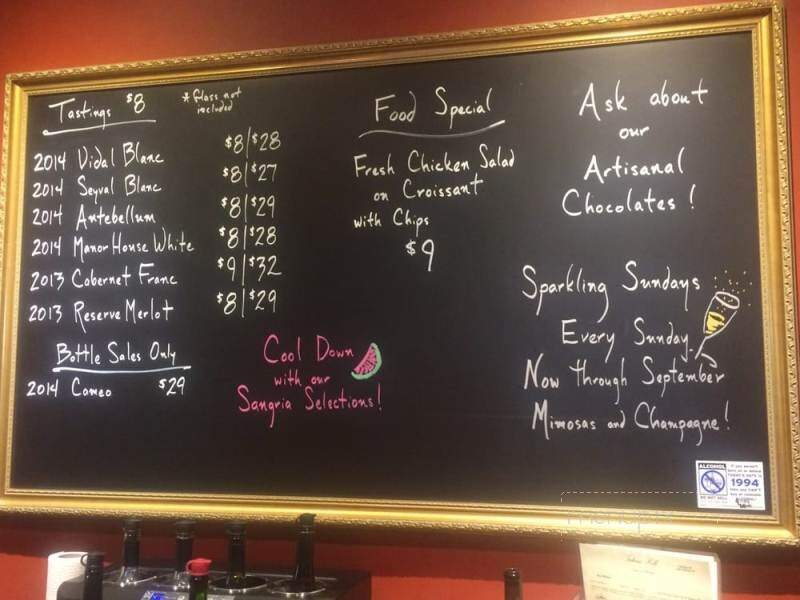 Tastings $8
* Glass not
included
2014 Vidal Blanc $8/$28
2014 Seyval Blanc $8/$27
2014 Antebellum $8/$29
2014 Manor House White $8/$28
2013 Cabernet Franc $9/$32
2013 Reserve Merlot $8/$29
Bottle Sales Only
2014 Cameo $29
Cool Down
with our
Sangria Selections!
Food Special
Fresh Chicken Salad
on Croissant
with Chips
$9
Ask about
our
Artisanal
Chocolates!
Sparkling Sundays
Every Sunday
Now through September
Mimosas and Champagne!
ALCOHOL
1994